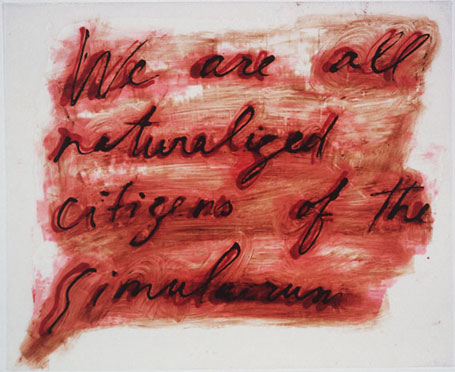 We are all
naturalized
citizens of the
simulacrum